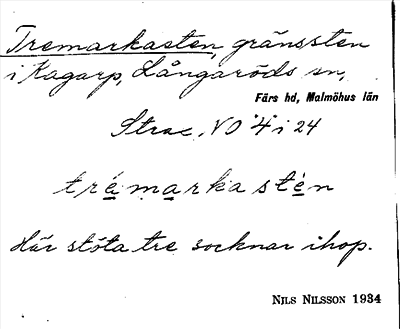 Tremarkasten, gränssten
i Kagarp, Långaröds sn,
Färs hd, Malmöhus län
Strax NO "4" i 24
trémarkastén
Här stöta tre socknar ihop.
NILS NILSSON 1934